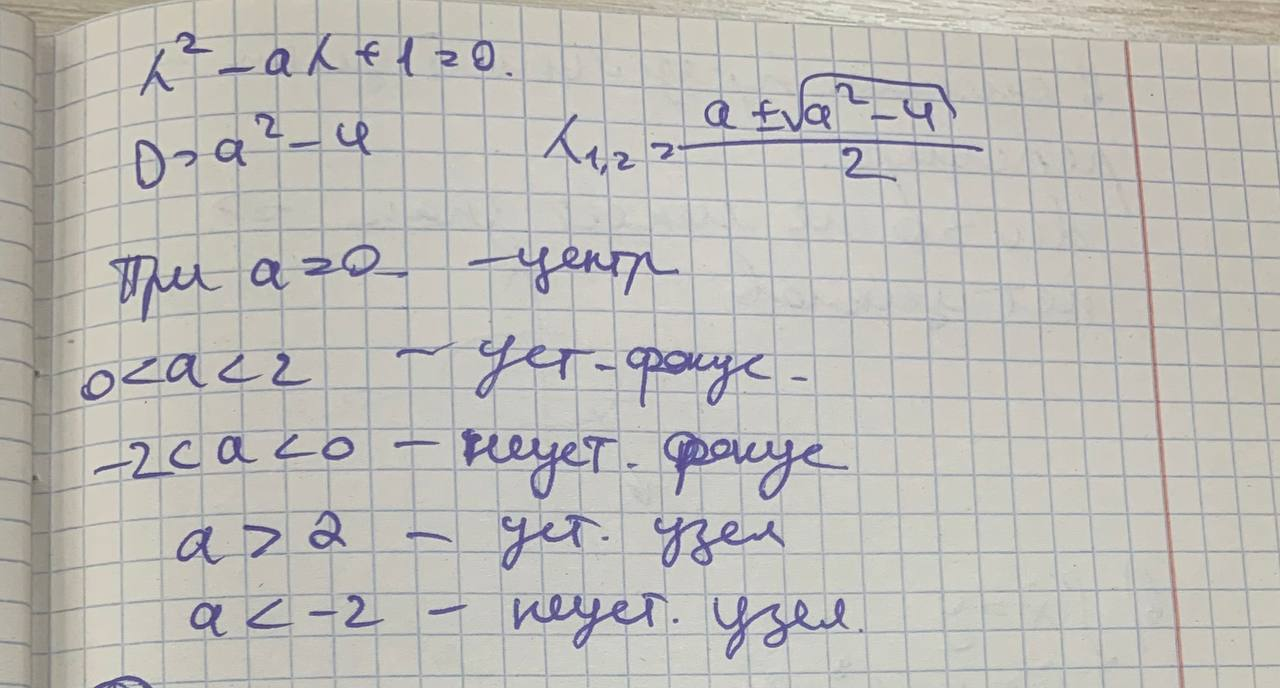 λ² - aλ + 1 = 0.
D = a² - 4     λ₁,₂ = (a ± √(a² - 4)) / 2
При a = 0 - центр
0 < a < 2 - уст. фокус.
-2 < a < 0 - неуст. фокус
a > 2 - уст. узел
a < -2 - неуст. узел.